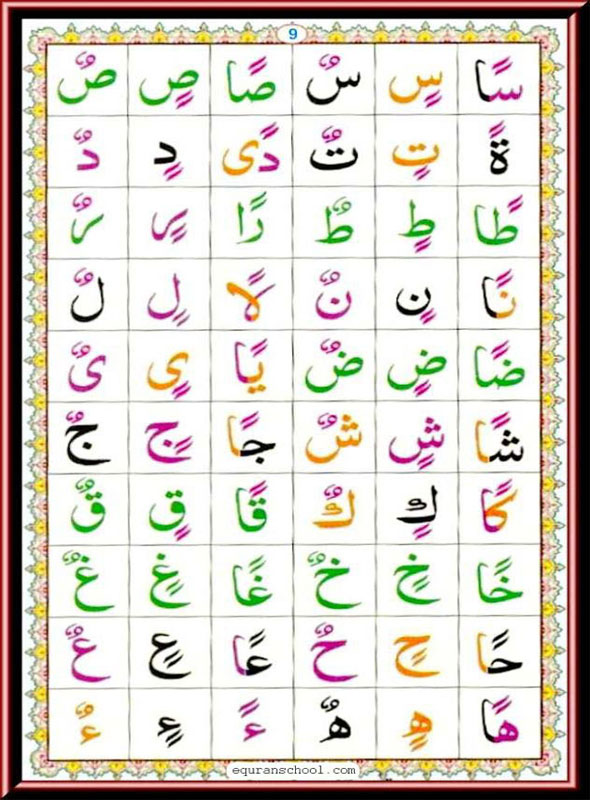 9
سًا سٍ سٌ صًا صٍ صٌ
ةً تٍ تٌ دًى دٍ دٌ
طًا طٍ طٌ رًا رٍ رٌ
نًا نٍ نٌ لًا لٍ لٌ
ضًا ضٍ ضٌ يًا ىٍ ىٌ
شًا شٍ شٌ جًا جٍ جٌ
كًا كٍ كٌ قًا قٍ قٌ
خًا خٍ خٌ غًا غٍ غٌ
حًا حٍ حٌ عًا عٍ عٌ
هًا هٍ هٌ ءً ءٍ ءٌ
equranschool.com